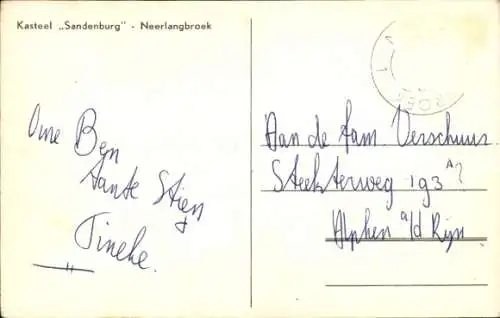 Kasteel „Sandenburg" - Neerlangbroek
Ome Ben
tante Stien
Tineke.
Aan de fam Verschuur
Steekterweg 193 A?
Alphen a/d Rijn